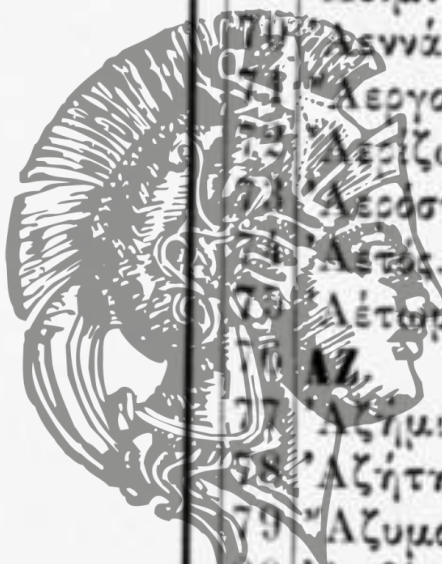 70 Ἀεννά
71 Ἀεργο
72 Ἀερίζω
73 Ἀερόσ
74 Ἀετός
75 Ἀέτωμ
76 ΑΖ.
77 Ἀζήμι
78 Ἀζήτη
79 Ἄζυμο